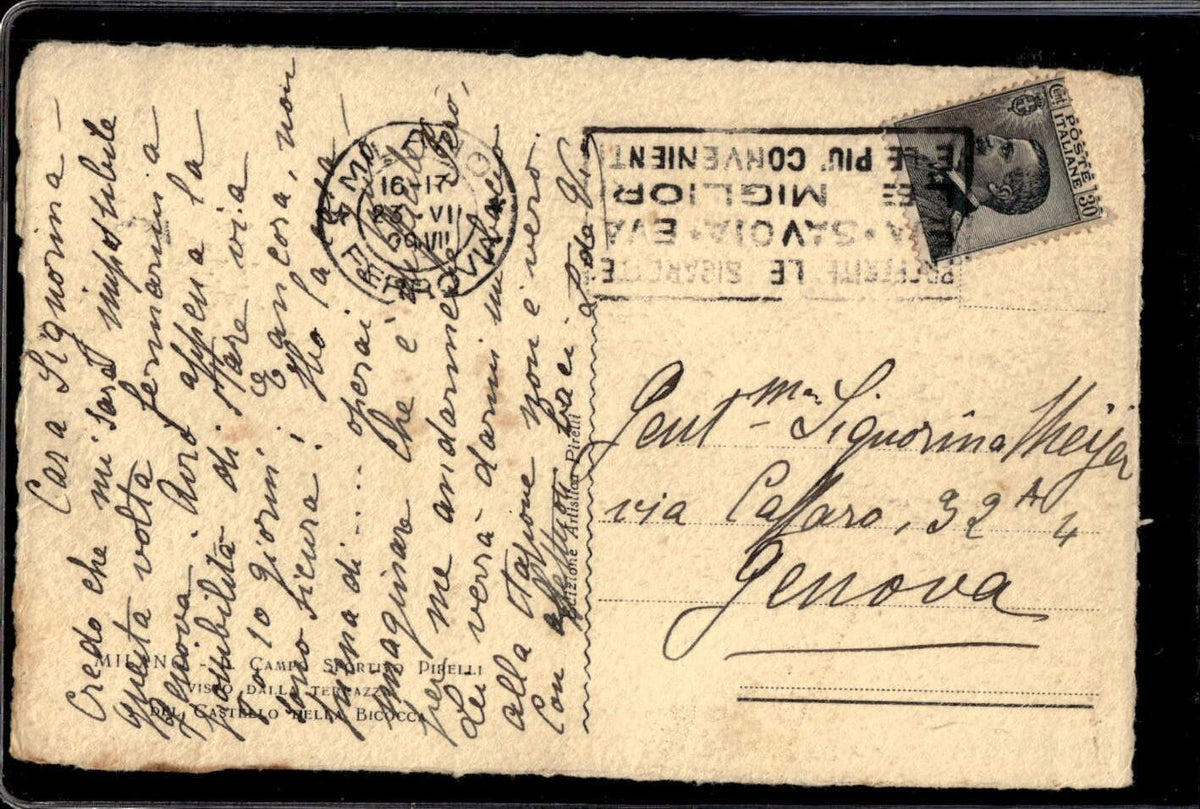 Cara Signorina -
Credo che mi sarà impossibile
questa volta fermarmi a
Genova. Avrò appena la
possibilità di stare via
9 o 10 giorni e ancora, non
sono sicura! Ho la casa
piena di .... operai
immaginare che è
per me andarmene. Però,
Lei verrà darmi un bacio
alla stazione non è vero?
Con affettuosi baci
MILANO - CAMPO SPORTIVO PIRELLI
VISTO DALLA TERRAZZA
DEL CASTELLO DELLA BICOCCA
Edizione Artistica Pirelli
MILANO
16-17
VII
FERROVIA
PREFERITE LE SIGARETTE
SAVOIA * EVA
MIGLIOR
LE PIU' CONVENIENTI
POSTE
ITALIANE
Cent.
30
Gent.ma Signorina Meijer
via Caffaro, 32 A/4
Genova